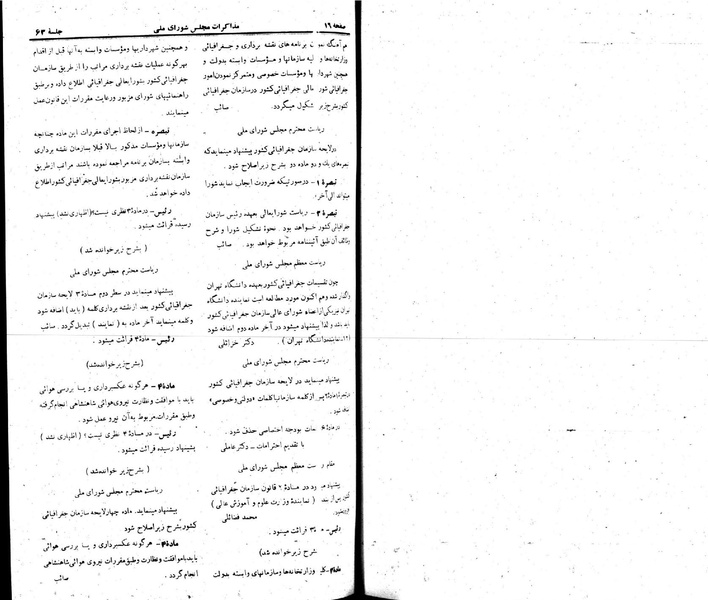 صفحه ۱۶
مذاکرات مجلس شورای ملی
جلسهٔ ۶۳
برنامه‌های نقشه برداری و جغرافیائی
سازمانها و مؤسسات وابسته بدولت و
ومؤسسات خصوصی ومتمرکز نمودن امور
عالی جغرافیائی کشور درسازمان جغرافیائی
کشور بشرح زیر تشکیل میگردد. صائب
ریاست محترم مجلس شورای ملی
درلایحه سازمان جغرافیائی کشور پیشنهاد مینماید که
تبصره‌های یک و دو ماده دو بشرح زیر اصلاح شود .
تبصرهٔ ۱ – درصورتیکه ضرورت ایجاب نماید شورا
میتواند الی آخر.
تبصرهٔ ۲ – ریاست شورایعالی بعهده رئیس سازمان
جغرافیائی کشور خواهد بود. نحوهٔ تشکیل شورا و شرح
وظائف آن طبق آئیننامه مربوط خواهد بود . صائب
ریاست معظم مجلس شورای ملی
چون تقسیمات جغرافیائی کشور بعهده دانشگاه تهران
واگذار شده وهم اکنون مورد مطالعه است نماینده دانشگاه
تهران یکی از اعضاء شورای عالی سازمان جغرافیائی کشور
باشد و لذا پیشنهاد میشود در آخر ماده دوم اضافه شود
(۱۲ـ نماینده دانشگاه تهران ) . دکتر خزائلی
ریاست محترم مجلس شورای ملی
پیشنهاد مینماید در لایحه سازمان جغرافیائی کشور
پس از کلمه سازمانها کلمات «دولتی وخصوصی»
اضافه شود.
درمادهٔ ۶ کلمات بودجه اختصاصی حذف شود .
با تقدیم احترامات – دکتر عاملی
مقام ریاست معظم مجلس شورای ملی
پیشنهاد میشود در مادهٔ ۲ قانون سازمان جغرافیائی
کشور پس از ( نمایندهٔ وزارت علوم و آموزش عالی )
محمد فضائلی
رئیس – مادهٔ ۳ قرائت میشود .
(بشرح زیر خوانده شد)
مادهٔ ۳– کلیه وزارتخانه‌ها وسازمانهای وابسته بدولت
و همچنین شهرداریها ومؤسسات وابسته به آنها قبل از اقدام
بهرگونه عملیات نقشه برداری مراتب را از طریق سازمان
جغرافیائی کشور بشورایعالی جغرافیائی اطلاع داده و برطبق
راهنمائیهای شورای مزبور ورعایت مقررات این قانون عمل
مینمایند .
تبصره – ازلحاظ اجرای مقررات این ماده چنانچه
سازمانها ومؤسسات مذکور بالا قبلا بسازمان نقشه برداری
وابسته بسازمان برنامه مراجعه نموده باشند مراتب ازطریق
سازمان نقشه برداری مزبور بشورایعالی جغرافیائی کشور اطلاع
داده خواهد شد .
رئیس – درمادهٔ ۳ نظری نیست؟ (اظهاری نشد) پیشنهاد
رسیده قرائت میشود .
( بشرح زیر خوانده شد )
ریاست محترم مجلس شورای ملی
پیشنهاد مینماید در سطر دوم مادهٔ ۳ لایحه سازمان
جغرافیائی کشور بعد از نقشه برداری کلمه ( باید ) اضافه شود
وکلمه مینمایند آخر ماده به ( نمایند ) تبدیل گردد . صائب
رئیس – مادهٔ ۴ قرائت میشود .
(بشرح زیر خوانده شد)
مادهٔ ۴ – هرگونه عکسبرداری و یا بررسی هوائی
باید با موافقت ونظارت نیروی هوائی شاهنشاهی انجام گرفته
وطبق مقررات مربوط به آن نیرو عمل شود .
رئیس – در مادهٔ ۴ نظری نیست؟ ( اظهاری نشد )
پیشنهاد رسیده قرائت میشود .
( بشرح زیر خوانده شد )
ریاست محترم مجلس شورای ملی
پیشنهاد مینماید. ماده چهار لایحه سازمان جغرافیائی
کشور بشرح زیر اصلاح شود
مادهٔ ۴ – هرگونه عکسبرداری و یا بررسی هوائی
باید با موافقت ونظارت وطبق مقررات نیروی هوائی شاهنشاهی
انجام گردد . صائب